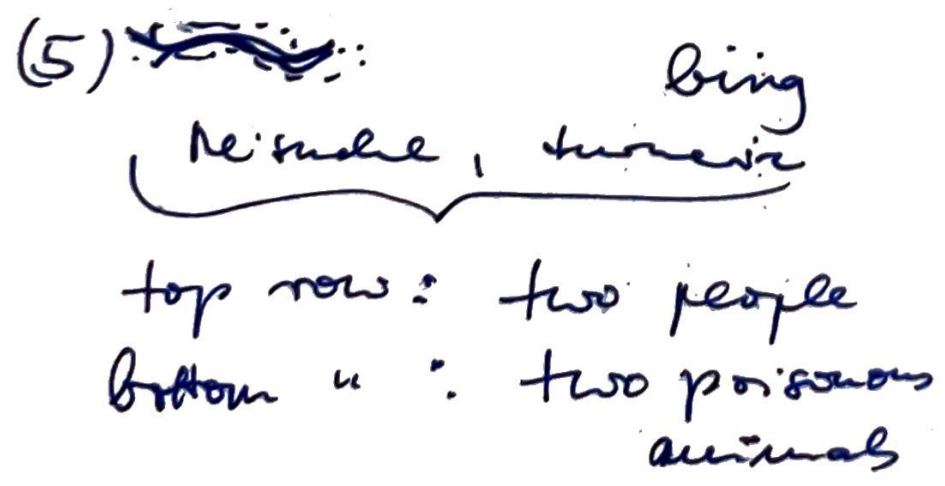 (5)
bing
, turmeric
top row : two people
bottom " : two poisonous
animals